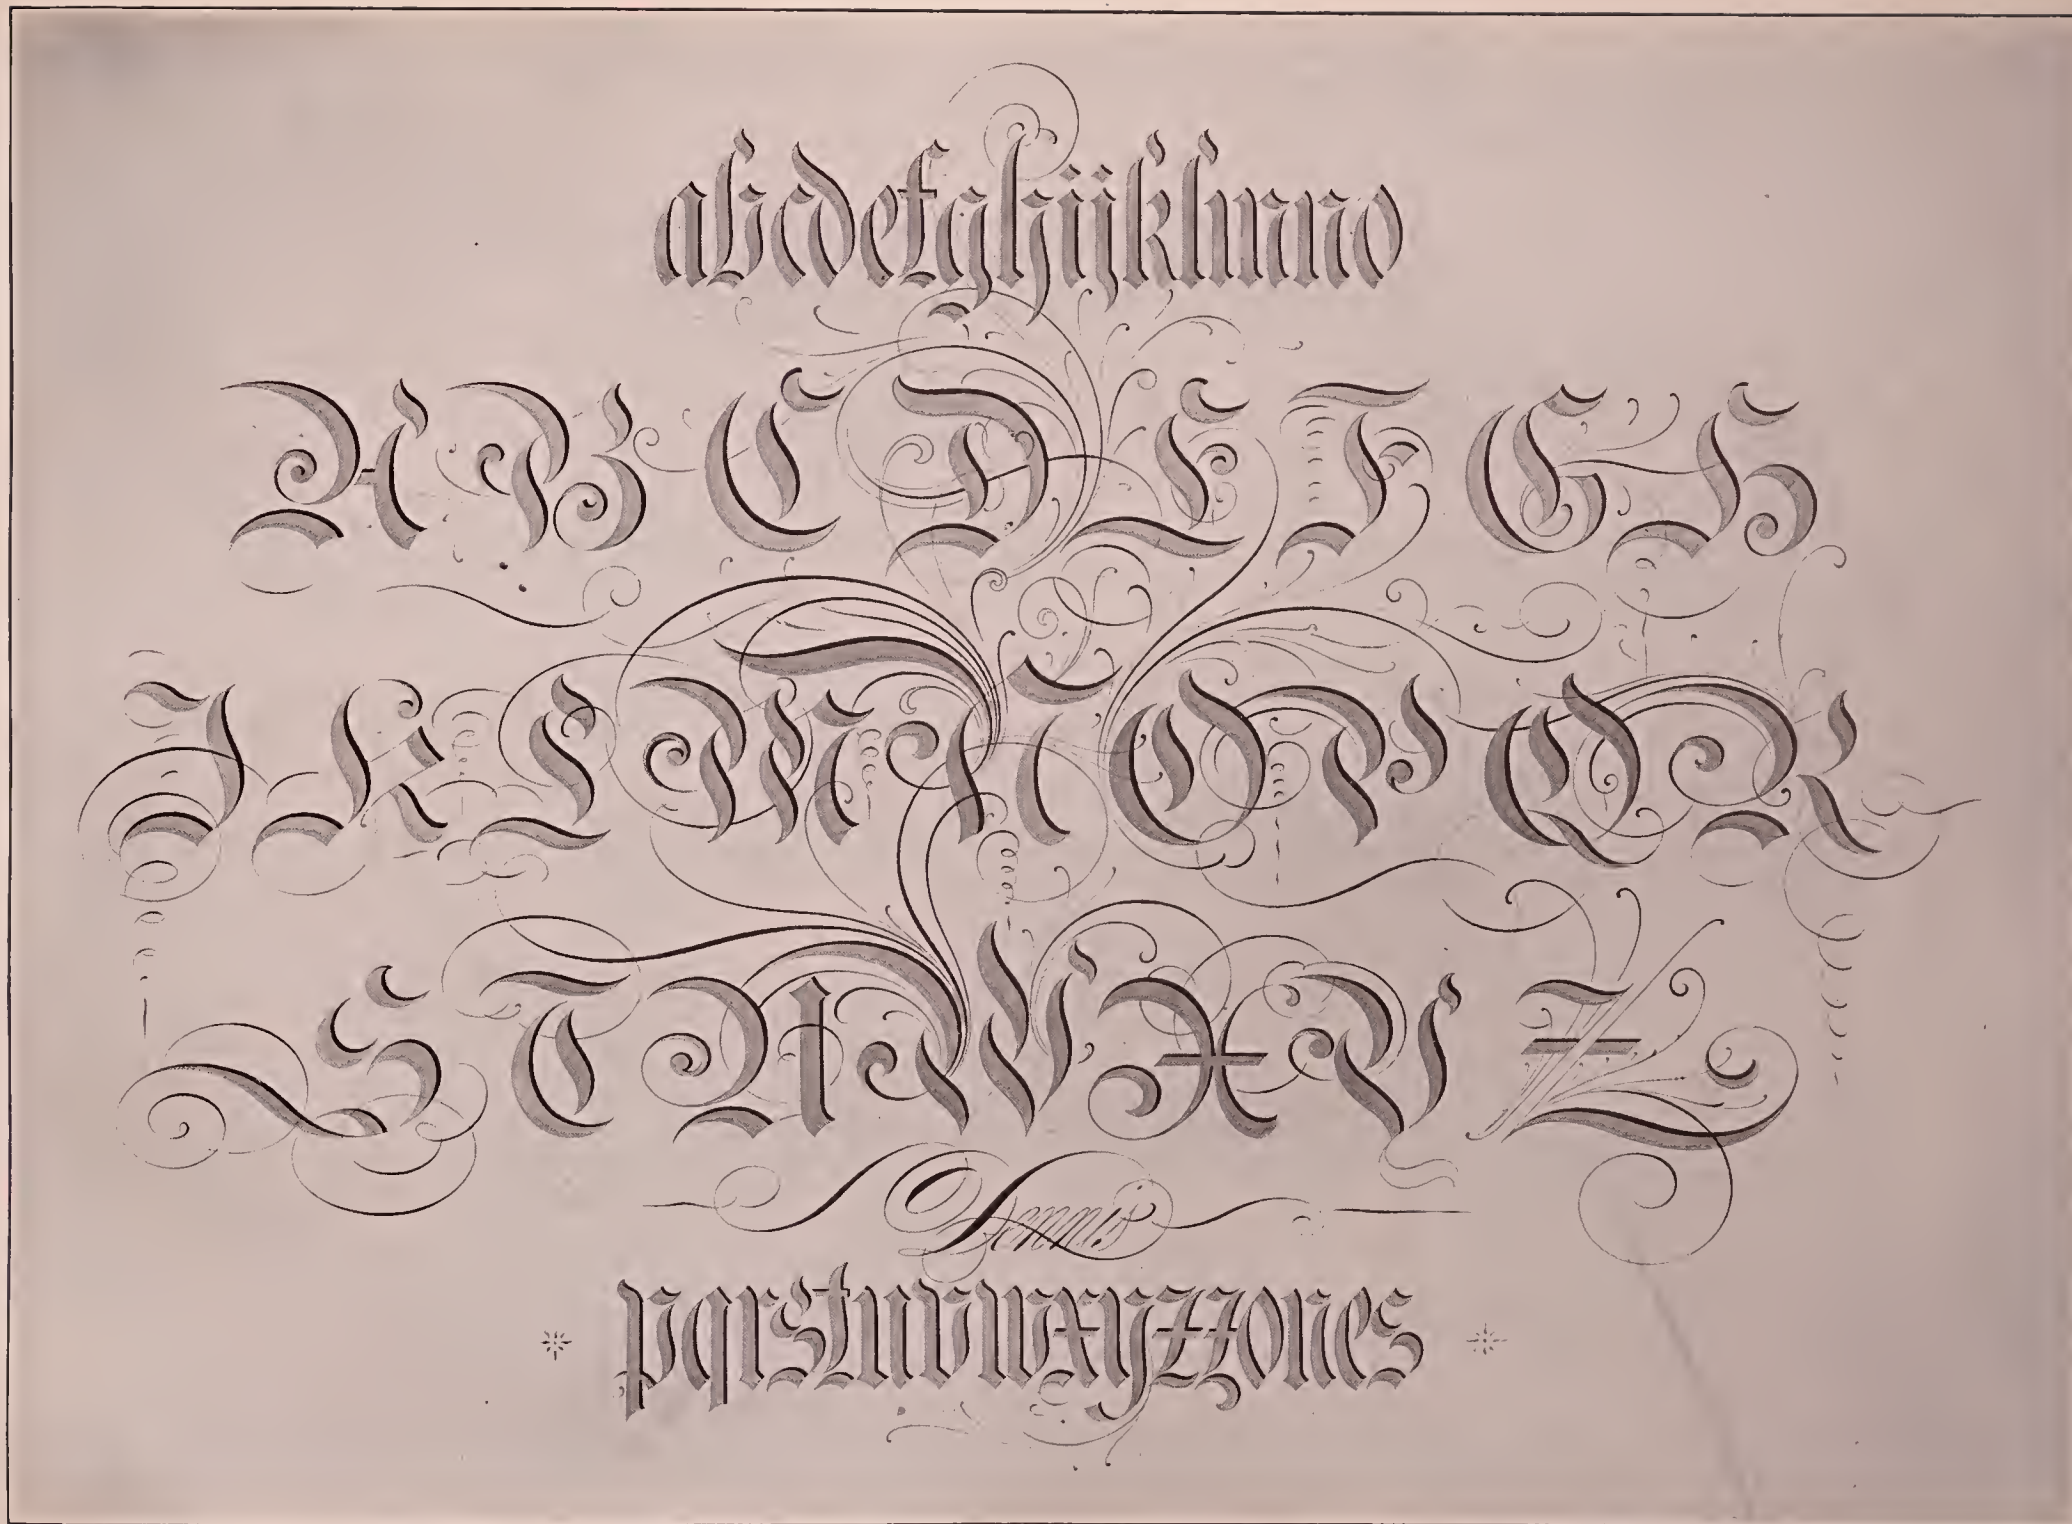 abcdefghijklmno
A B C D E F G H
I K L M N O P Q R
S T U W X Y Z
Dennis
pqrstuvwxyzzones